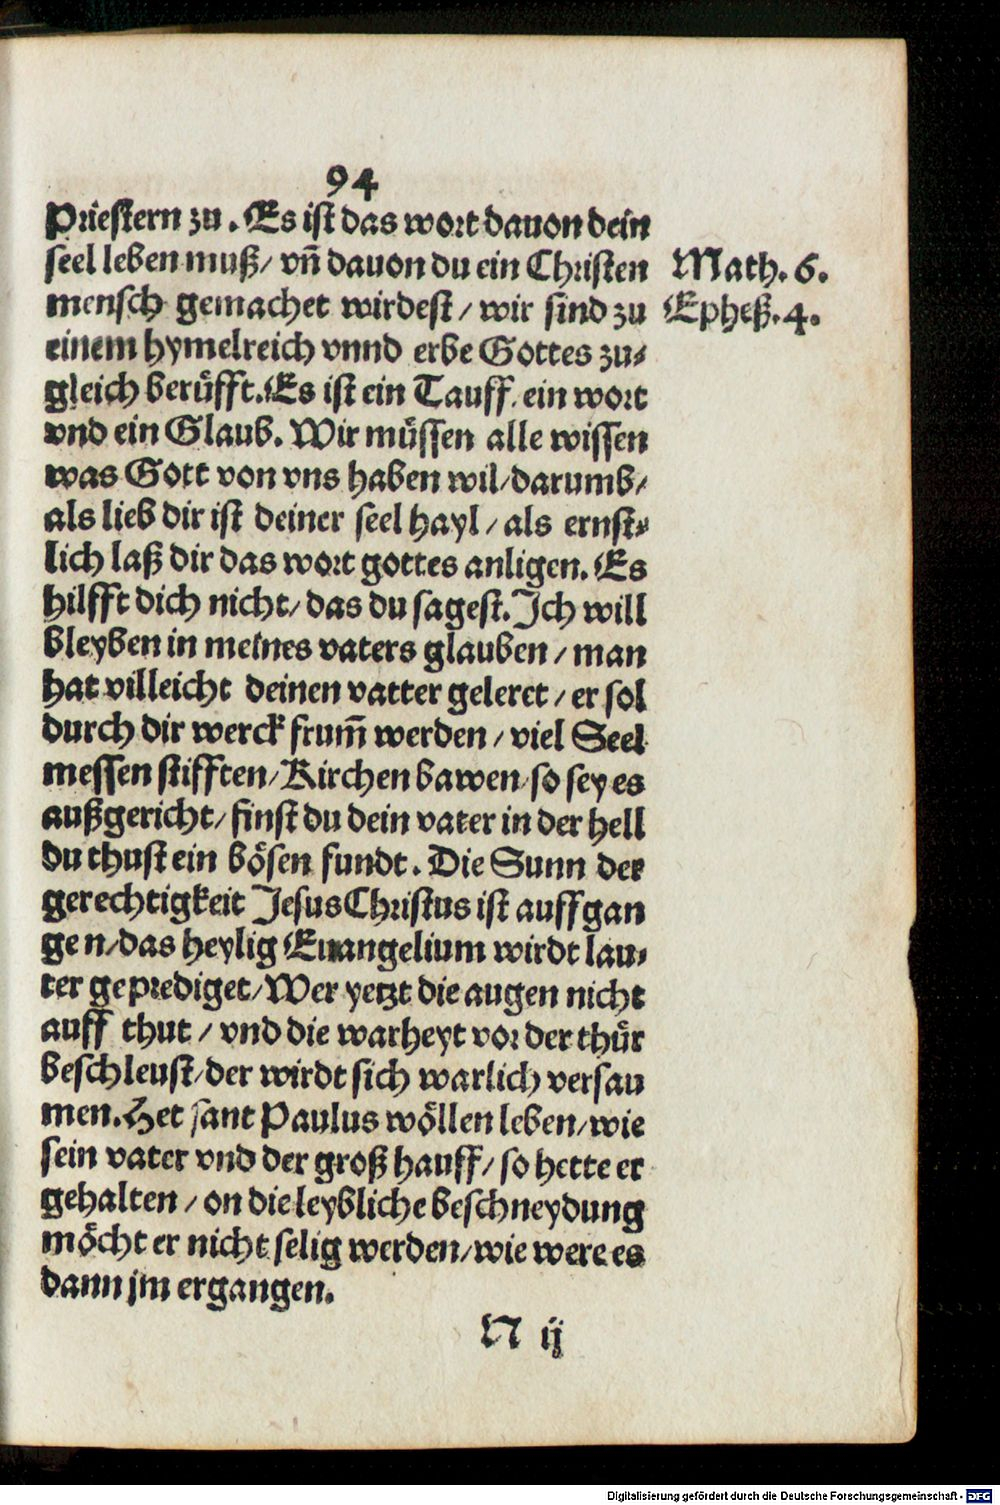 94
Priestern zu. Es ist das wort dauon dein
seel leben muß/ vñ dauon du ein Christen
Math. 6.
mensch gemachet wirdest/ wir sind zu
Epheß. 4.
einem hymelreich vnnd erbe Gottes zu⸗
gleich berüfft. Es ist ein Tauff, ein wort
vnd ein Glaub. Wir müssen alle wissen
was Gott von vns haben wil/ darumb/
als lieb dir ist deiner seel hayl/ als ernst⸗
lich laß dir das wort gottes anligen. Es
hilfft dich nicht/ das du sagest. Ich will
bleyben in meines vaters glauben/ man
hat villeicht deinen vatter geleret/ er sol
durch dir werck frum̃ werden/ viel Seel
messen stifften/ Kirchen bawen/ so sey es
außgericht/ finst du dein vater in der hell
du thust ein bösen fundt. Die Sunn der
gerechtigkeit Jesus Christus ist auffgan
gen/ das heylig Euangelium wirdt lau⸗
ter geprediget/ Wer yetzt die augen nicht
auff thut/ vnd die warheyt vor der thür
beschleust/ der wirdt sich warlich versau
men. Het sant Paulus wöllen leben/ wie
sein vater vnd der groß hauff/ so hette er
gehalten/ on die leybliche beschneydung
möcht er nicht selig werden/ wie were es
dann jm ergangen.
N ij
Digitalisierung gefördert durch die Deutsche Forschungsgemeinschaft - DFG